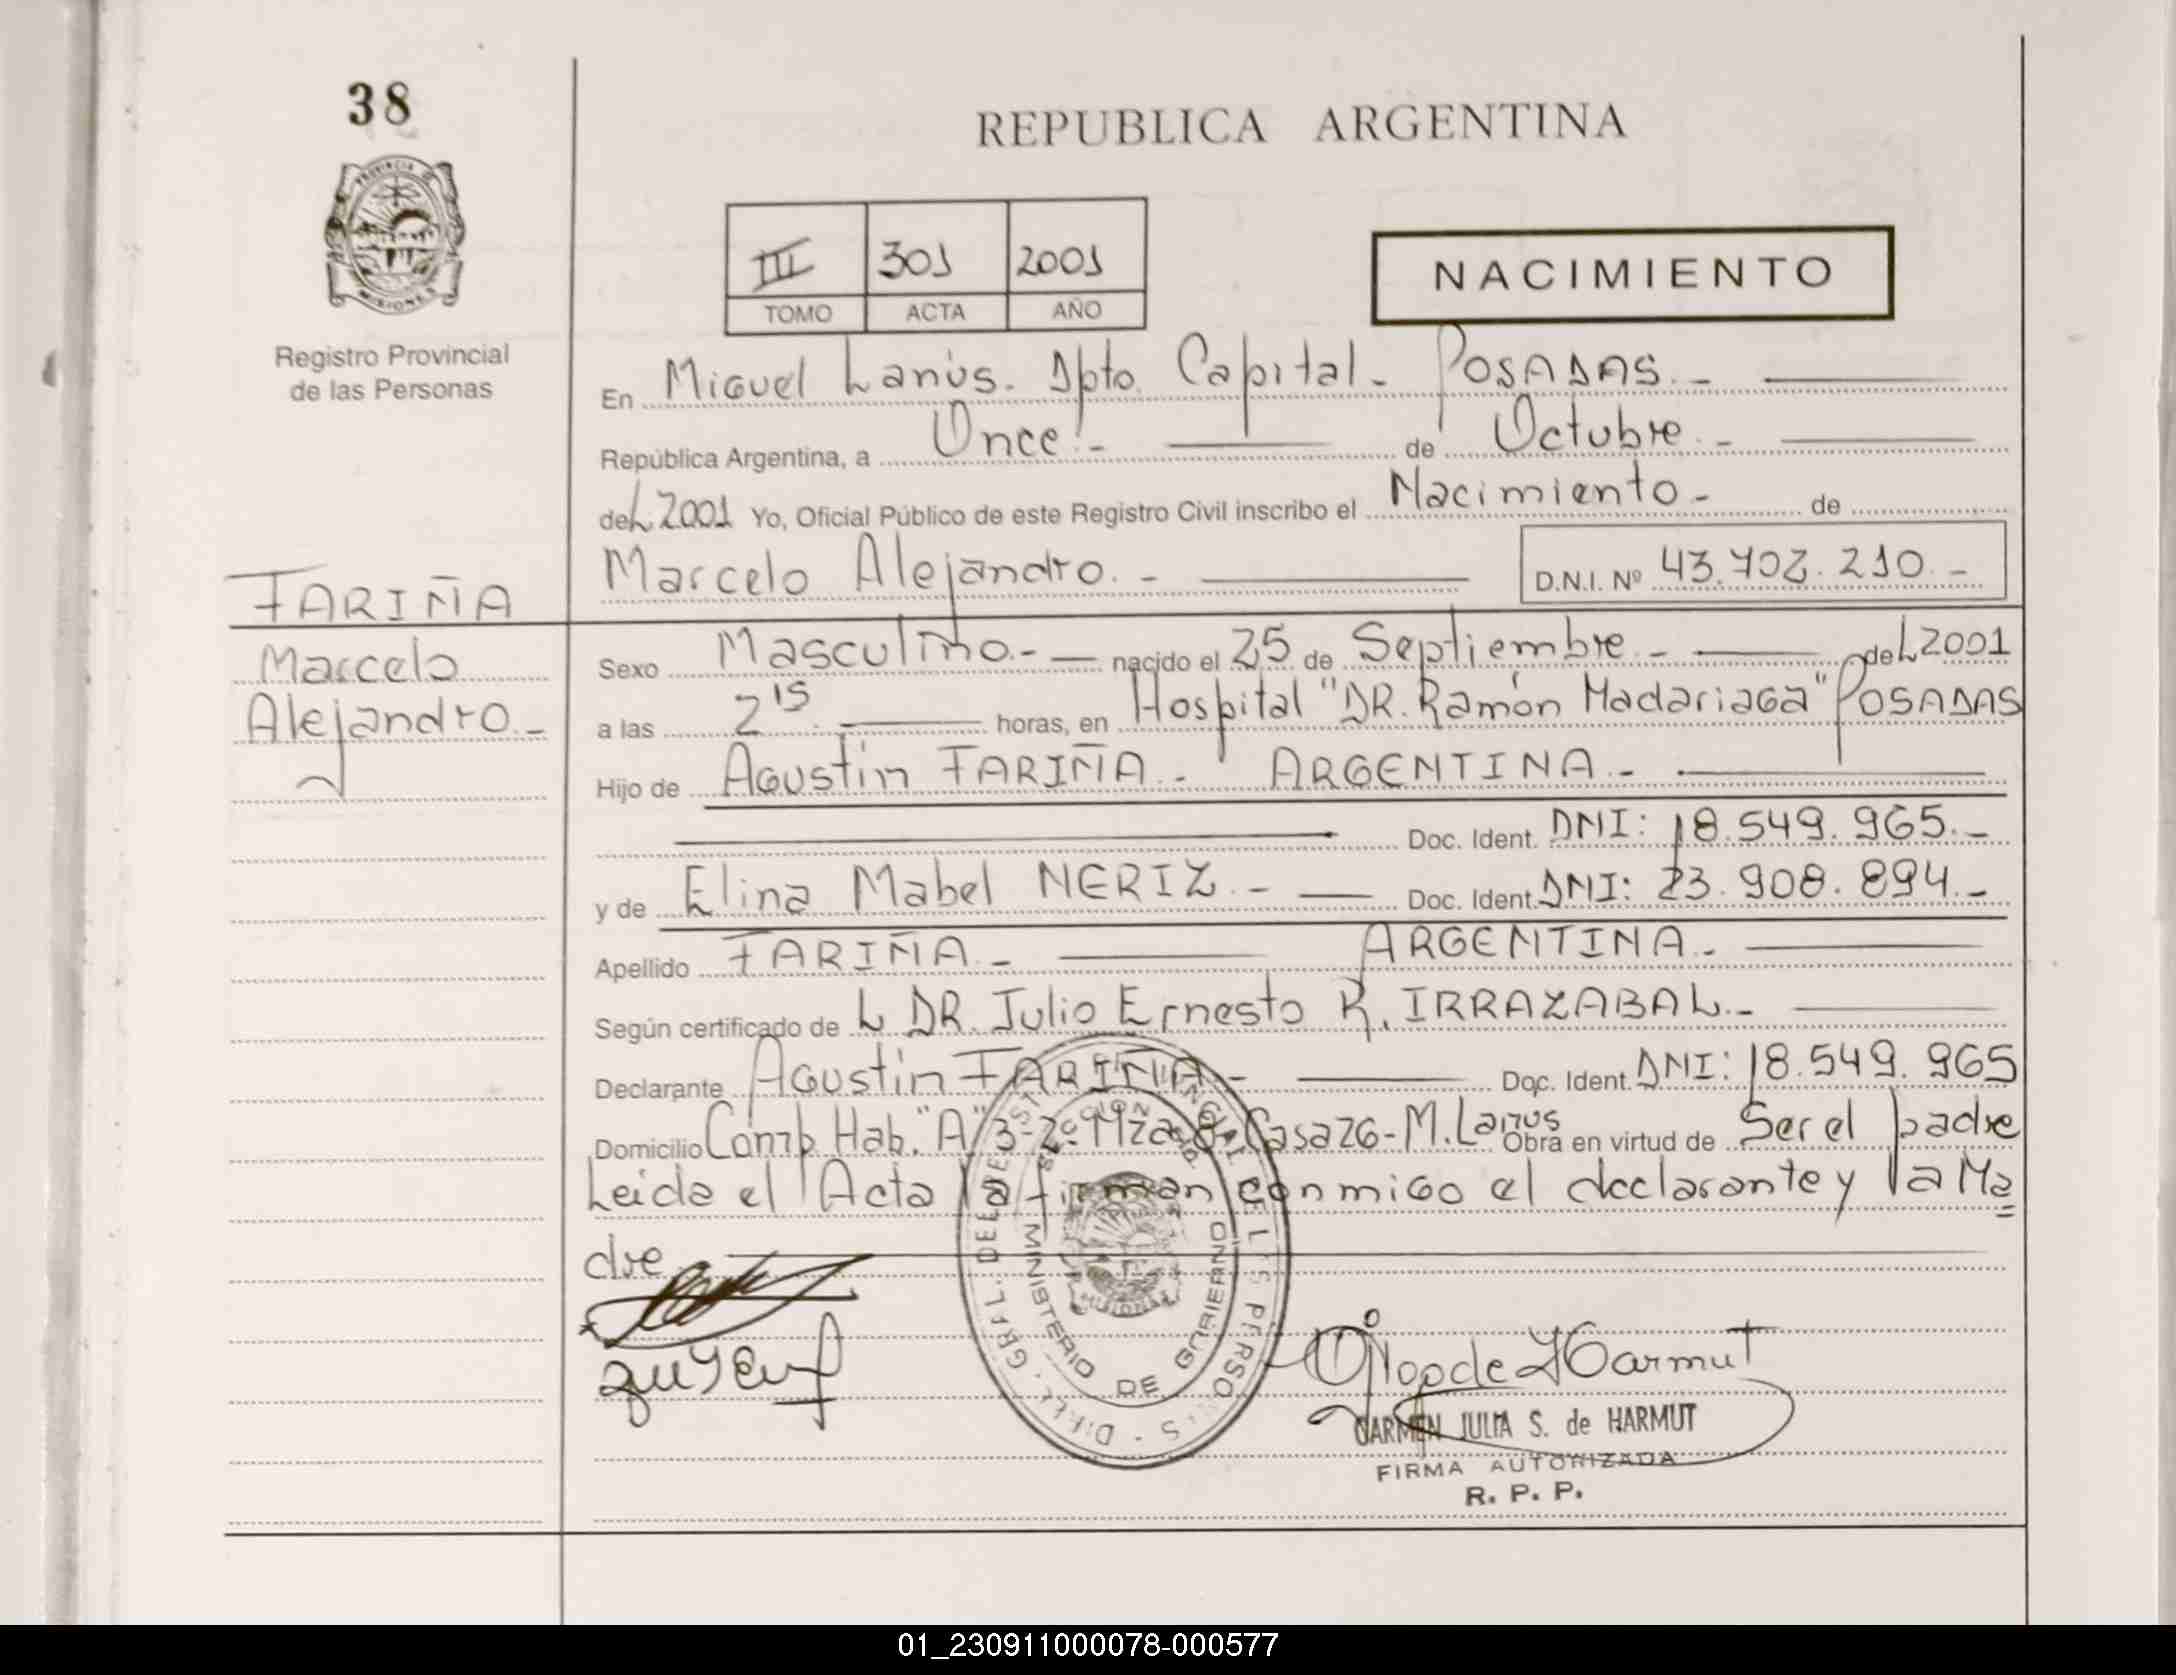 38
REPUBLICA ARGENTINA
PROVINCIA DE
MISIONES
III 301 2001
TOMO ACTA AÑO
NACIMIENTO
Registro Provincial
de las Personas
En Miguel Lanús. Dpto. Capital. POSADAS.-
República Argentina, a Once.- de Octubre.-
del 2001 Yo, Oficial Público de este Registro Civil inscribo el Nacimiento- de
Marcelo Alejandro.- D.N.I. Nº 43.702.210.-
FARIÑA
Marcelo
Alejandro.-
Sexo Masculino.- nacido el 25 de Septiembre.- del 2001
a las 2 15 horas, en Hospital "DR. Ramón Madariaga" POSADAS
Hijo de Agustin FARIÑA.- ARGENTINA.-
Doc. Ident. DNI: 18.549.965.-
y de Elina Mabel NERIZ.- Doc. Ident. DNI: 23.908.894.-
Apellido FARIÑA.- ARGENTINA.-
Según certificado de L DR. Julio Ernesto R. IRRAZABAL.-
Declarante Agustin FARIÑA- Doc. Ident. DNI: 18.549.965
Domicilio Comp. Hab. "A" 3-2. Mza 8- Casa 26- M. Lanus Obra en virtud de Ser el padre
Leida el Acta la firman conmigo el declarante y la Ma
dre
MINISTERIO DE GOBIERNO
MISIONES
CARMEN JULIA S. de HARMUT
FIRMA AUTORIZADA
R. P. P.
01_230911000078-000577